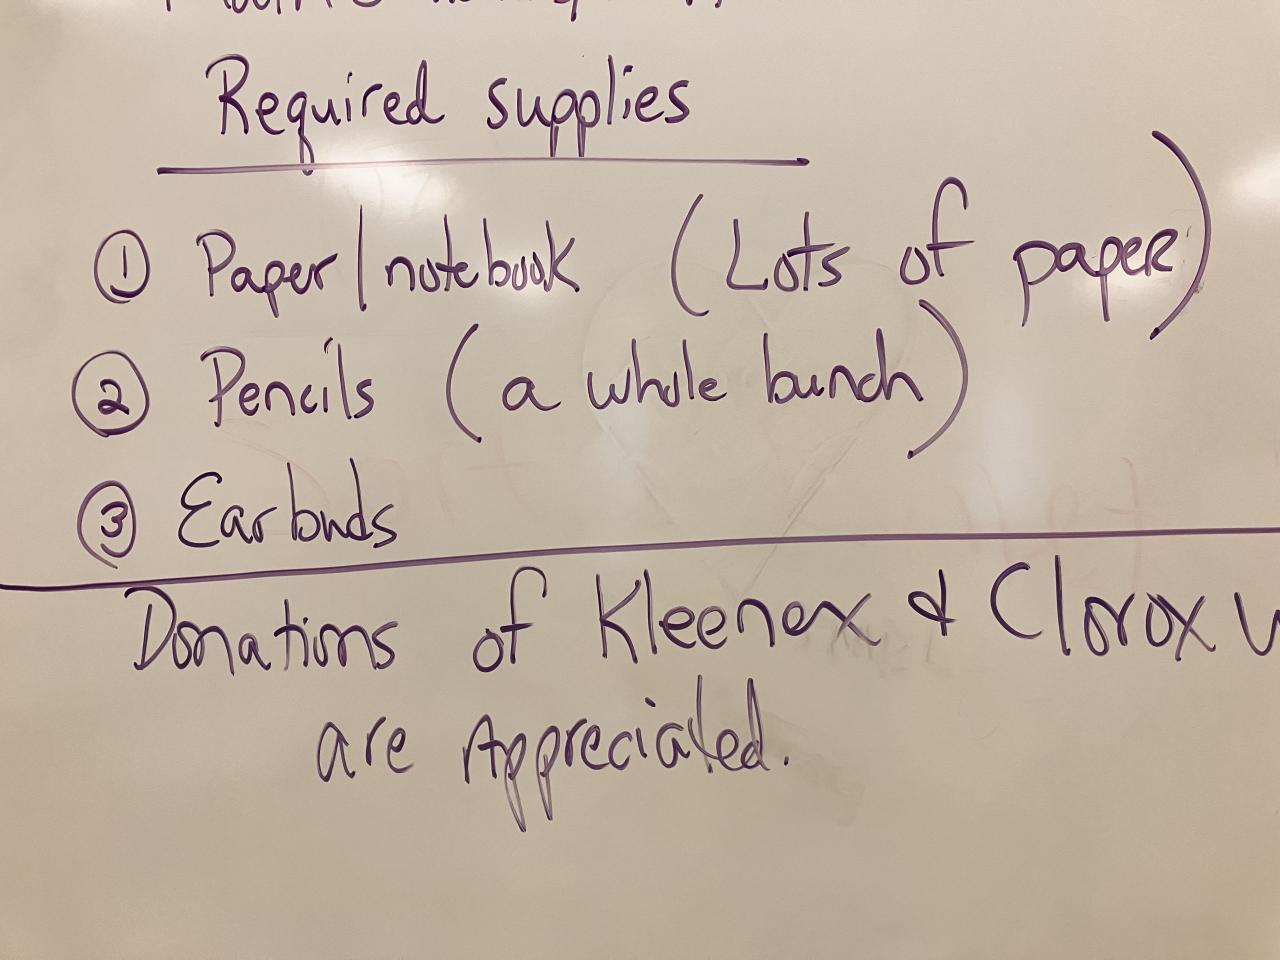 Required supplies
① Paper/notebook (Lots of paper)
② Pencils (a whole bunch)
③ Earbuds
Donations of Kleenex & Clorox
are Appreciated.